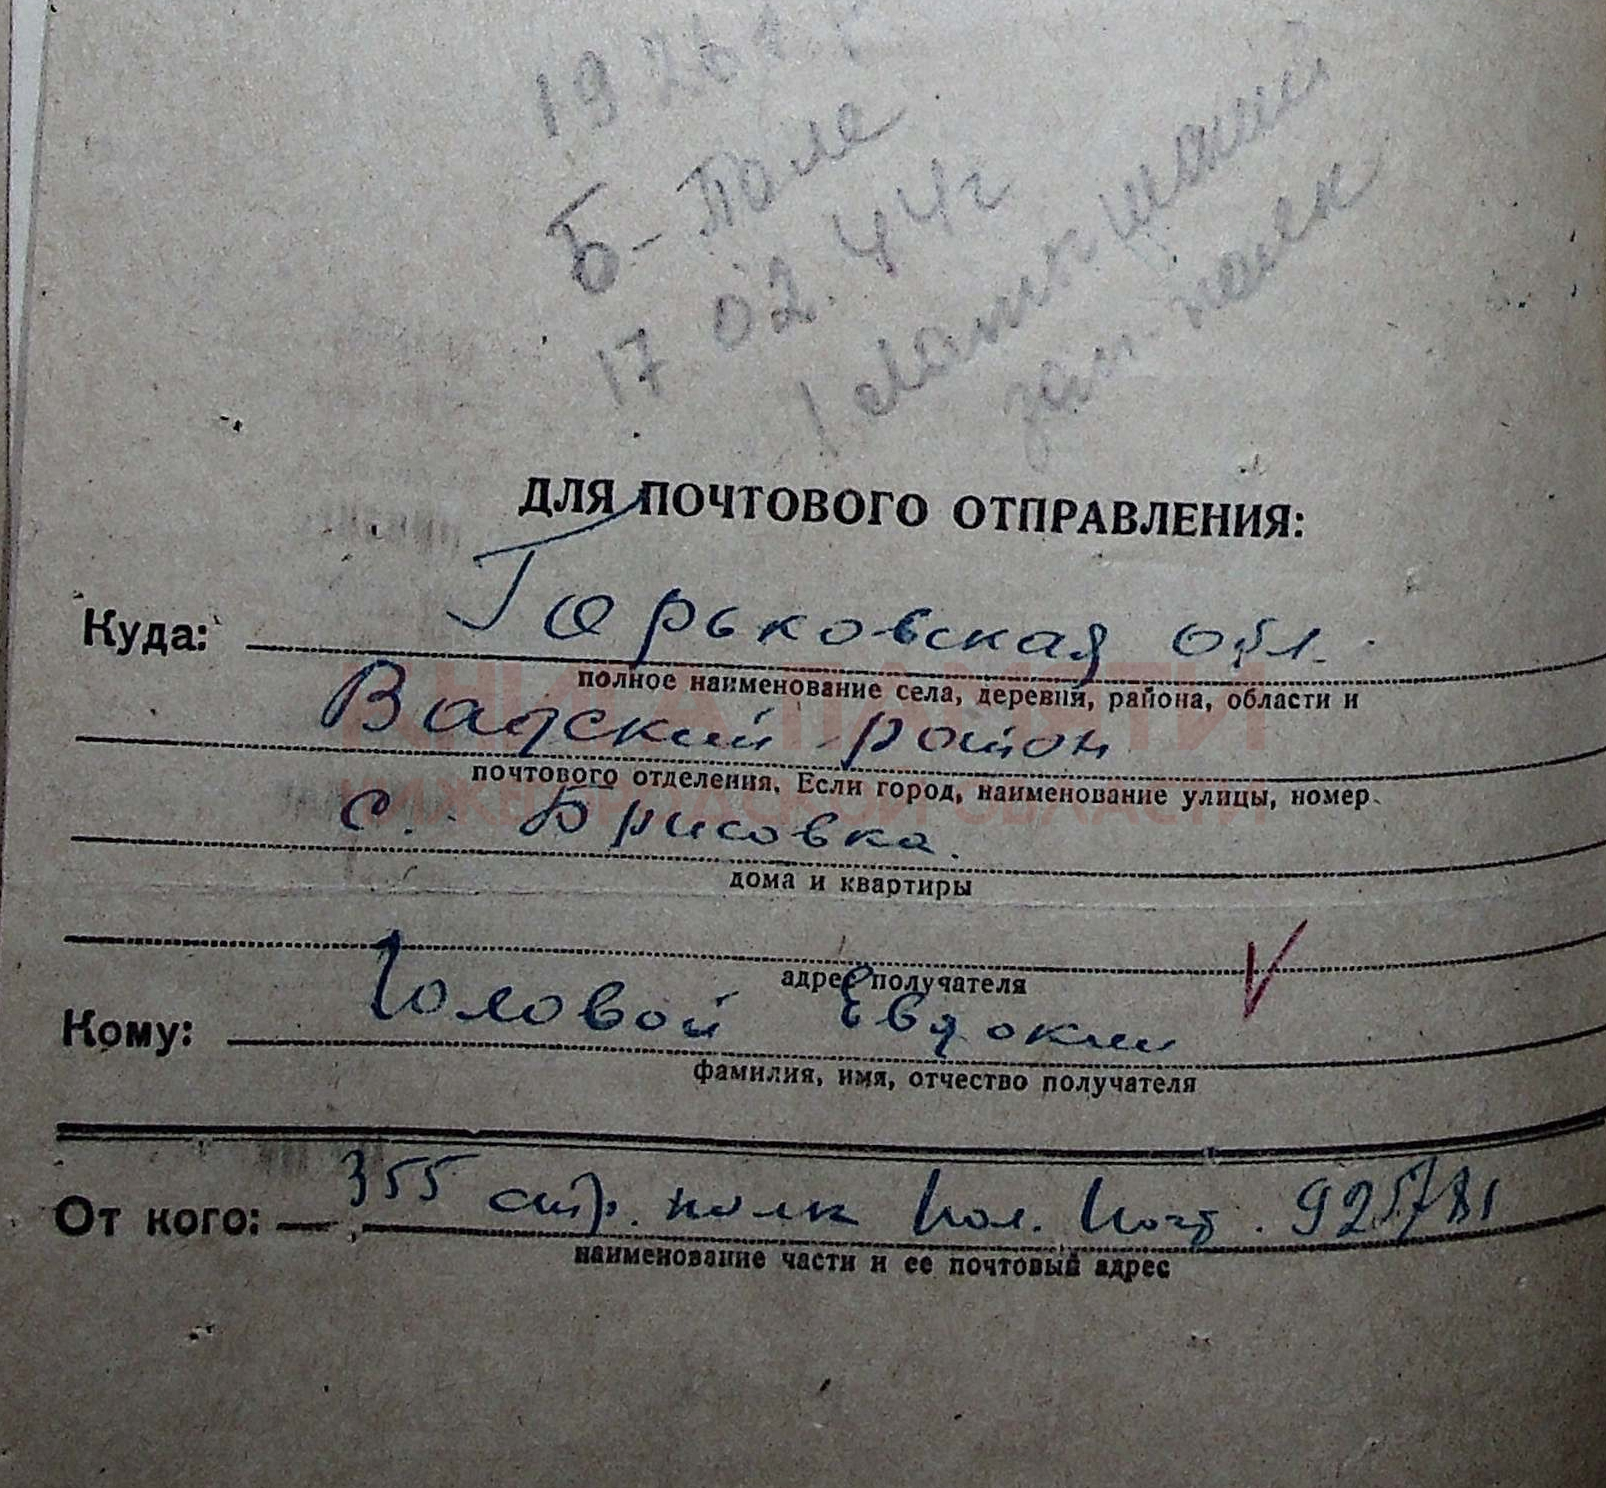 1926 г.
Б-Поле
17 02.44г
зап. полк
ДЛЯ ПОЧТОВОГО ОТПРАВЛЕНИЯ:
Куда: Горьковская обл.
полное наименование села, деревни, района, области и
Вадский район
почтового отделения. Если город, наименование улицы, номер
с. Борисовка.
дома и квартиры
адрес получателя
Кому: Юловой Евдокии
фамилия, имя, отчество получателя
От кого: 355 стр. полк Пол. Почт. 92578
наименование части и ее почтовый адрес
КНИГА ПАМЯТИ
НИЖЕГОРОДСКОЙ ОБЛАСТИ